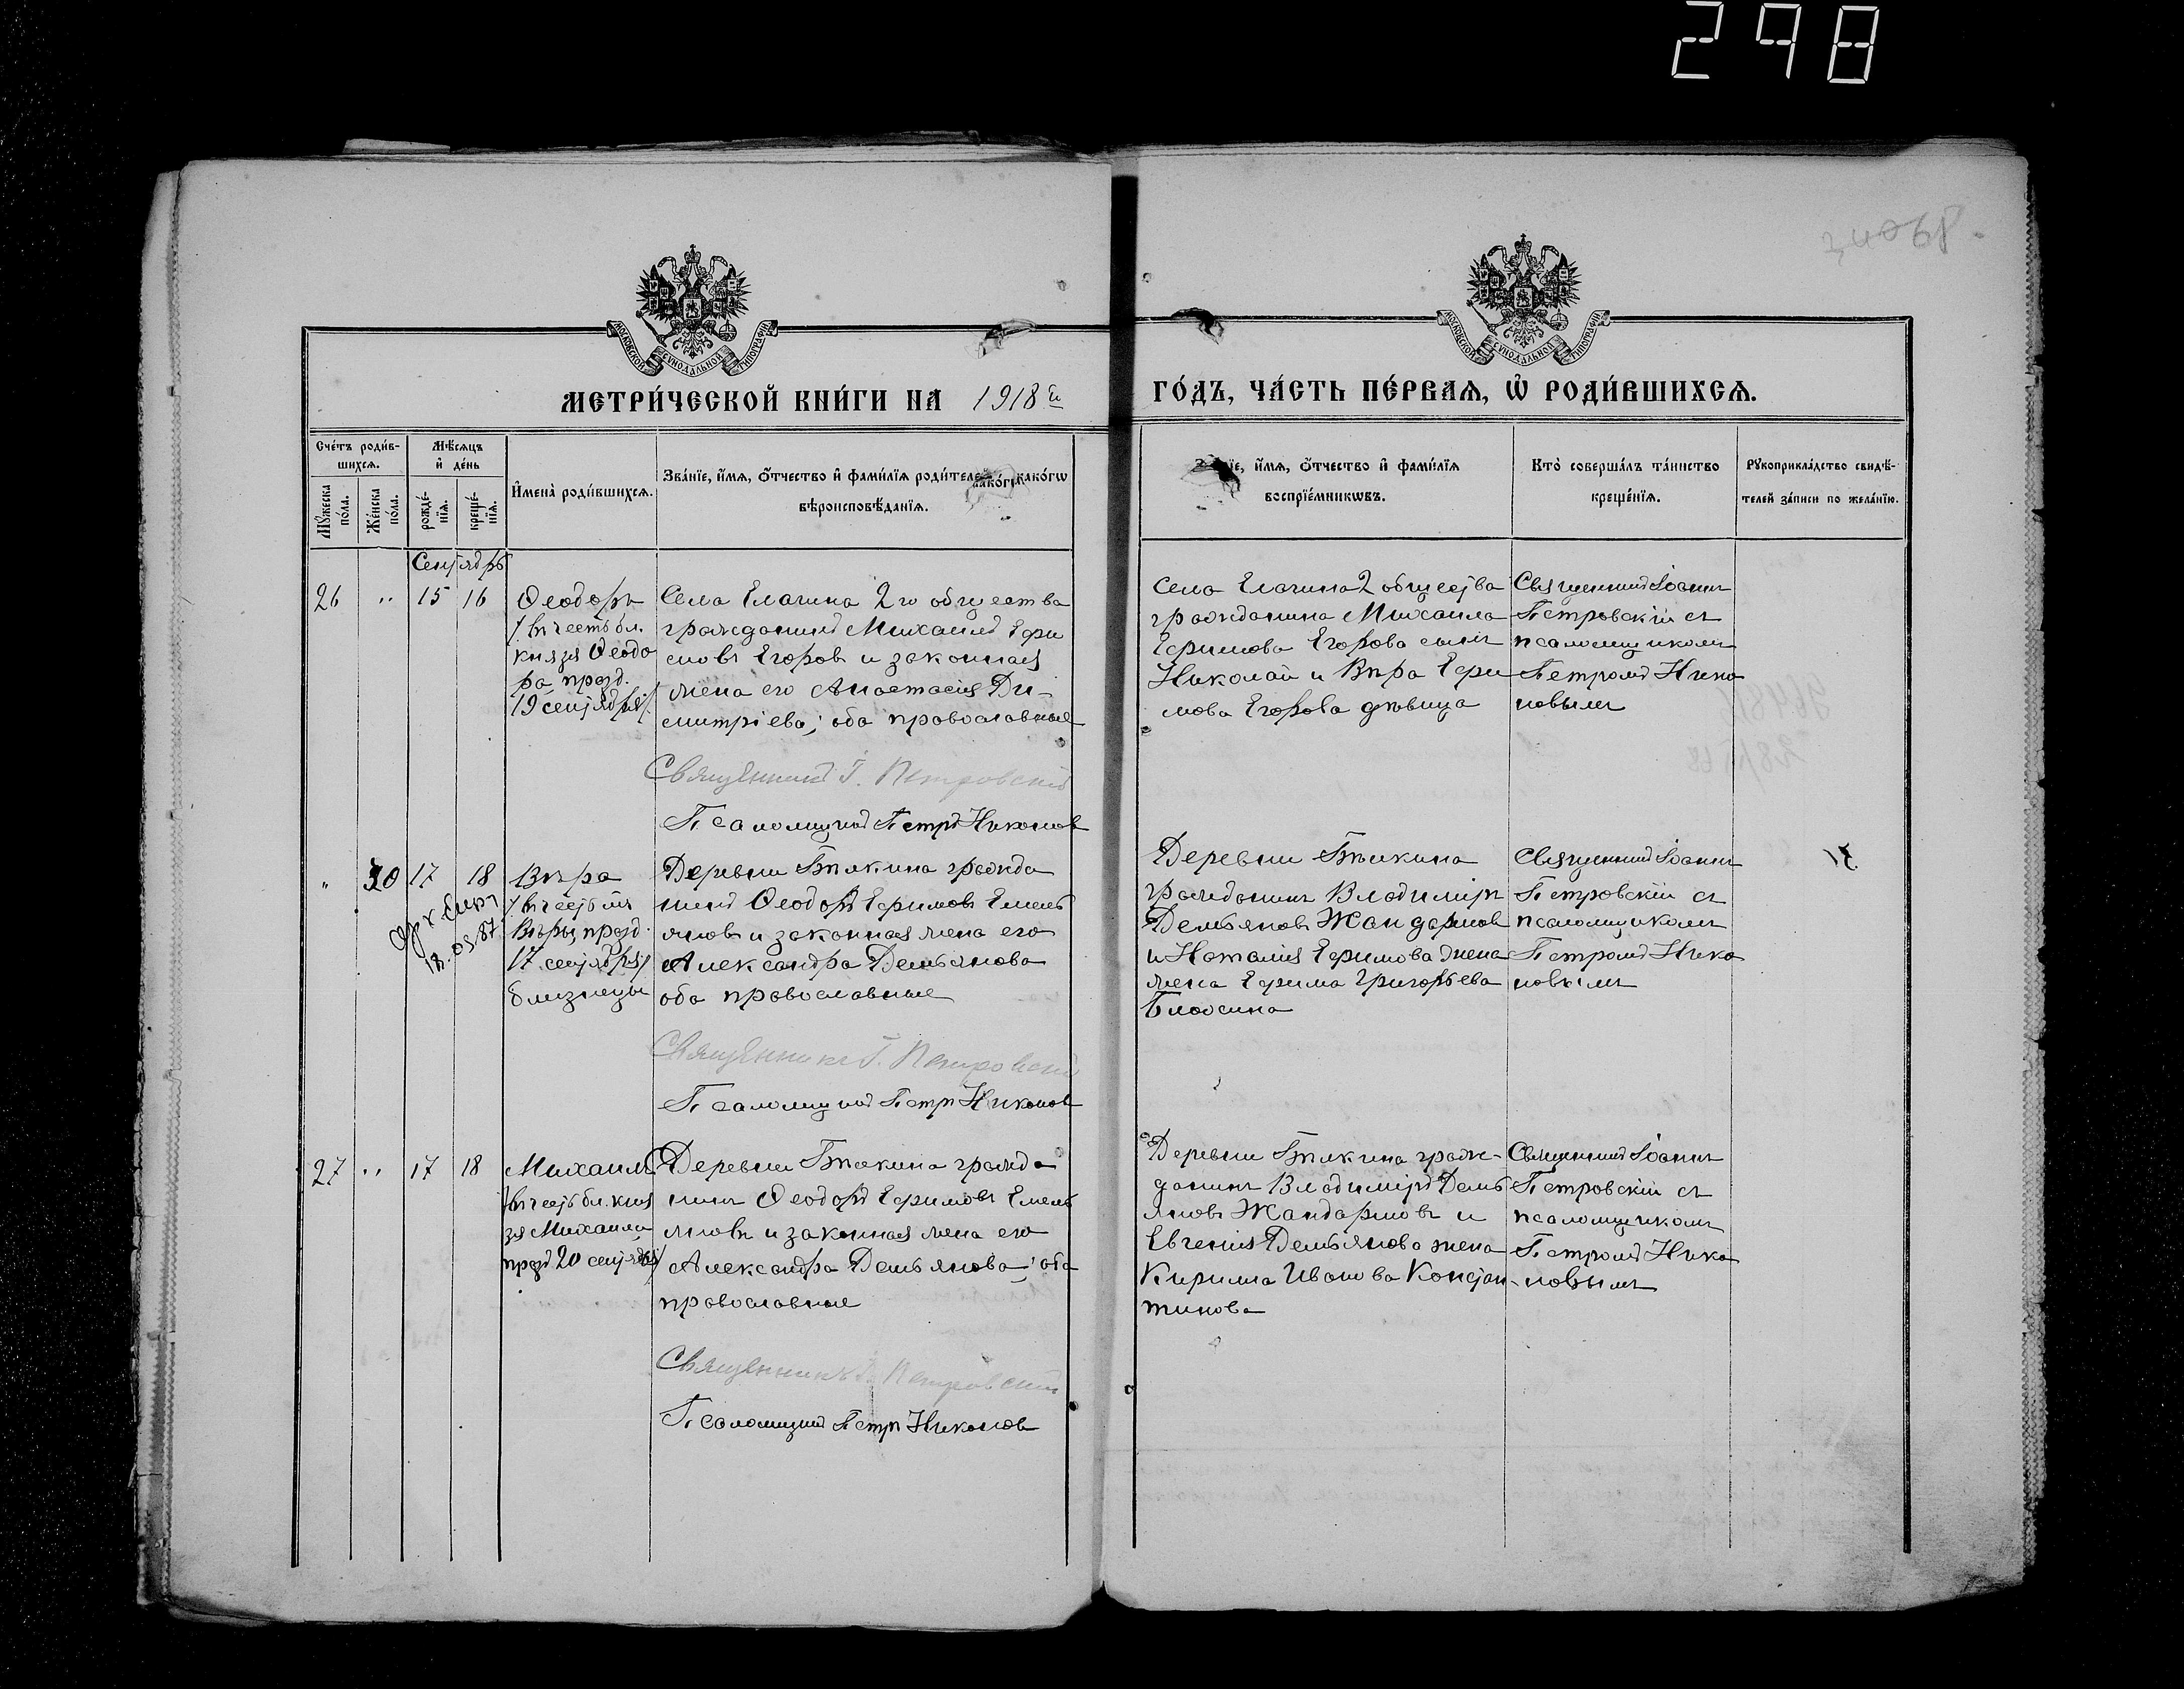 298
34068.
МОСКОВСКОЙ СУНОДАЛЬНОЙ ТИПОГРАФІИ
МОСКОВСКОЙ СУНОДАЛЬНОЙ ТИПОГРАФІИ
МЕТРИ́ЧЕСКОЙ КНИ́ГИ НА 1918й ГО́ДЪ, ЧА́СТЬ ПЕ́РВАѦ, Ѡ҆ РОДИ́ВШИХСѦ.
Сче́тъ роди́в-
шихсѧ.
Мѣ́сѧцъ
и҆ де́нь
Мꙋ́жеска по́ла.
Же́нска по́ла.
рожде́-
нїѧ.
креще́-
нїѧ.
И҆мена̀ роди́вшихсѧ.
Зва́нїе, и҆́мѧ, ѻ҆́тчество и҆ фами́лїѧ роди́телей како́гѡ
вѣроисповѣ́данїѧ.
и҆́мѧ, ѻ҆́тчество и҆ фами́лїѧ
воспрїе́мникѡвъ.
Кто̀ соверша́лъ та́инство
креще́нїѧ.
Рꙋкоприкла́дство свидѣ́-
телей за́писи по жела́нїю.
Сентябрь
26 " 15 16
Ѳеодоръ
/въ честь бл.
князя Ѳеодо
ра, празд.
19 сентября/.
Села Елагина 2го общества
гражданинъ Михаилъ Ефи
мовъ Егоровъ и законная
жена его Анастасія Ди-
митріева; оба православные
Священникъ І. Петровскій
Псаломщикъ Петръ Никоновъ
Села Елагина 2 общества
гражданина Михаила
Ефимова Егорова сынъ
Николай и Вѣра Ефи
мова Егорова дѣвица
Священникъ Іоаннъ
Петровскій съ
псаломщикомъ
Петромъ Нико
новымъ
" 30 17 18
12.03.87
Вѣра
/въ честь мц
Вѣры празд.
17 сентября/
близнецы
Деревни Бтикина гражда
нинъ Ѳеодоръ Ефимовъ Емель
яновъ и законная жена его
Александра Демьянова
оба православные
Священникъ І. Петровскій
Псаломщикъ Петръ Никоновъ
Деревни Бтикина
гражданинъ Владиміръ
Демьяновъ Жандармовъ
и Наталія Ефимова
жена Ефима Григорьева
Священникъ Іоаннъ
Петровскій съ
псаломщикомъ
Петромъ Нико
новымъ
27 " 17 18
Михаилъ
/въ честь бл. кня
зя Михаила
празд 20 сентября/
Деревни Бтикина гражда
нинъ Ѳеодоръ Ефимовъ Емель
яновъ и законная жена его
Александра Демьянова; оба
православные
Священникъ І. Петровскій
Псаломщикъ Петръ Никоновъ
Деревни Бтикина граж-
данинъ Владиміръ Демь
яновъ Жандармовъ и
Евгенія Демьянова жена
Кирилла Иванова Констан-
тинова
Священникъ Іоаннъ
Петровскій съ
псаломщикомъ
Петромъ Нико
новымъ